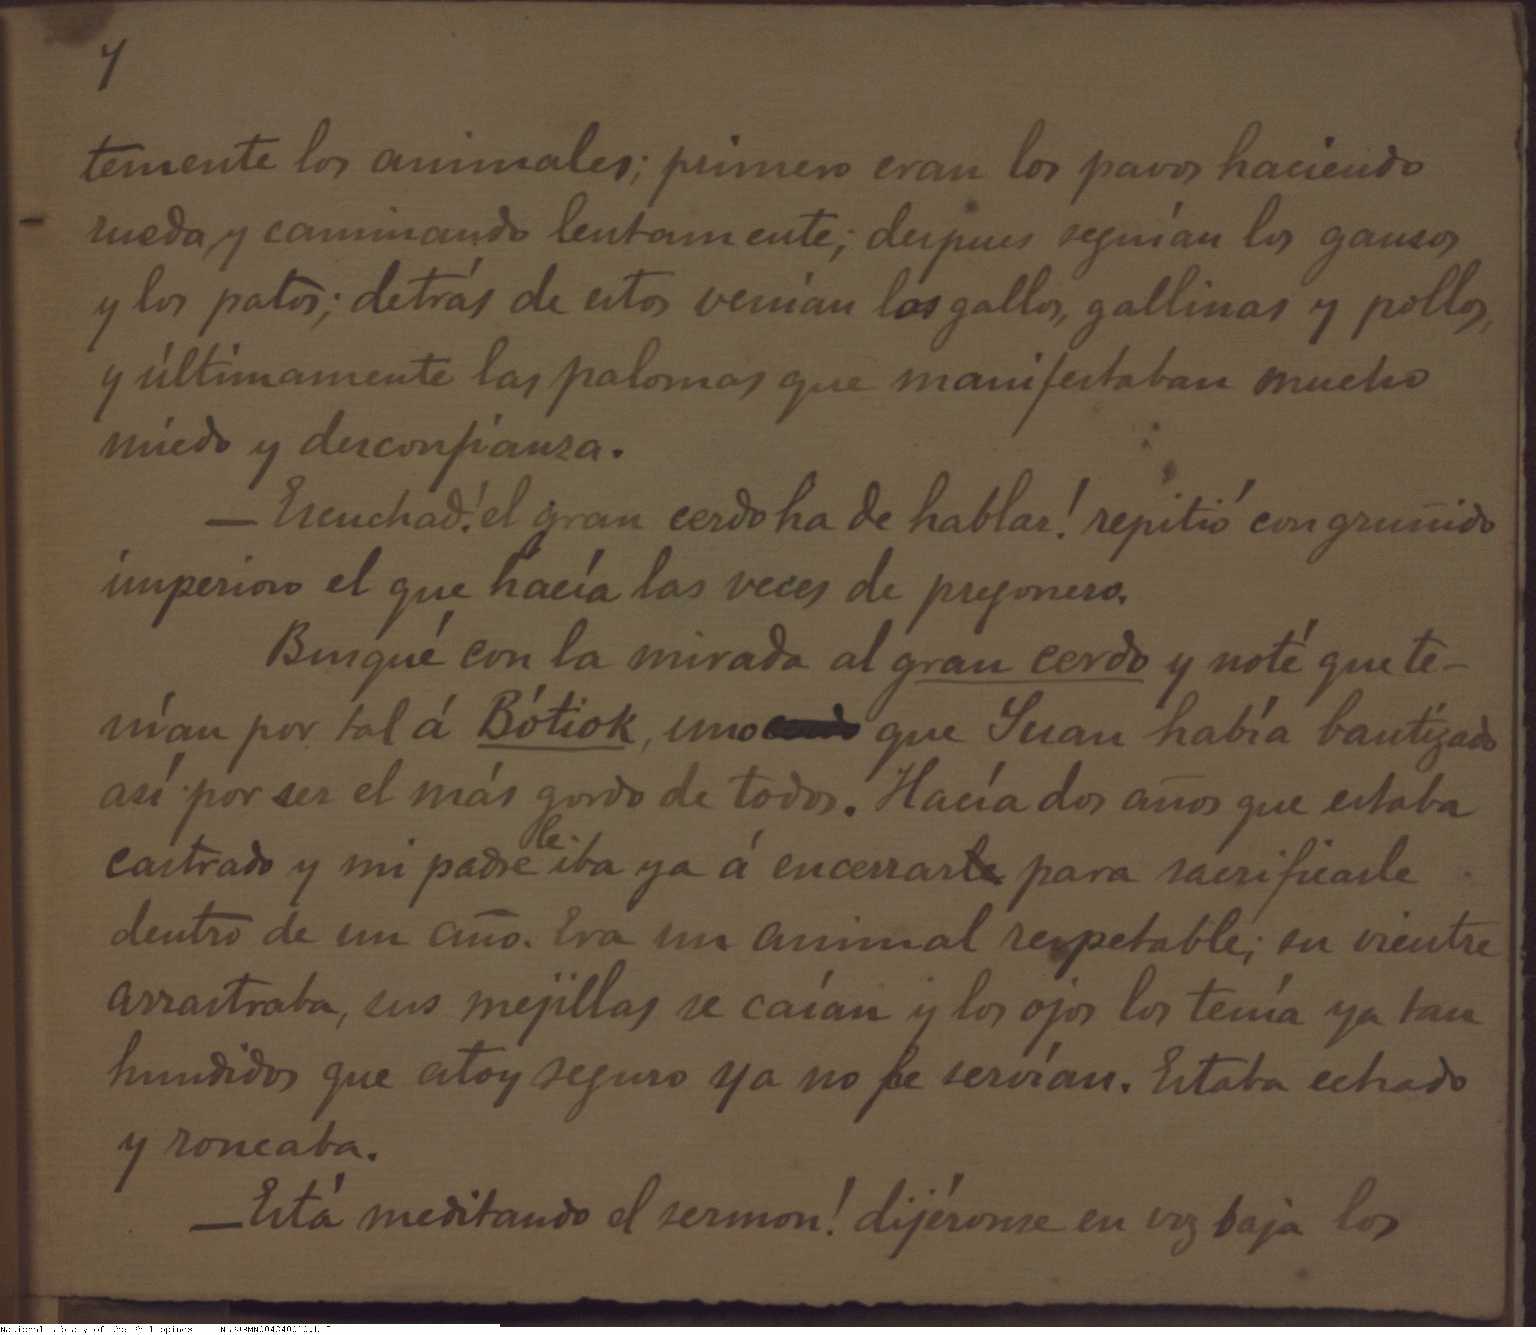 7
temente los animales; primero eran los pavos haciendo
rueda y caminando lentamente; despues seguían los gansos
y los patos; detrás de estos venían los gallos, gallinas y pollos,
y últimamente las palomas que manifestaban mucho
miedo y desconfianza.
— Escuchad! el gran cerdo ha de hablar! repitió con gruñido
imperioso el que hacía las veces de pregonero.
Busqué con la mirada al gran cerdo y noté que te-
nían por tal á Bótiok, uno que Juan había bautizado
así por ser el más gordo de todos. Hacía dos años que estaba
castrado y mi padre le iba ya á encerrar para sacrificarle
dentro de un año. Era un animal respetable; su vientre
arrastraba, sus mejillas se caían y los ojos los tenía ya tan
hundidos que estoy seguro ya no le servían. Estaba echado
y roncaba.
— Está meditando el sermon! dijéronse en voz baja los
National Library of the Philippines